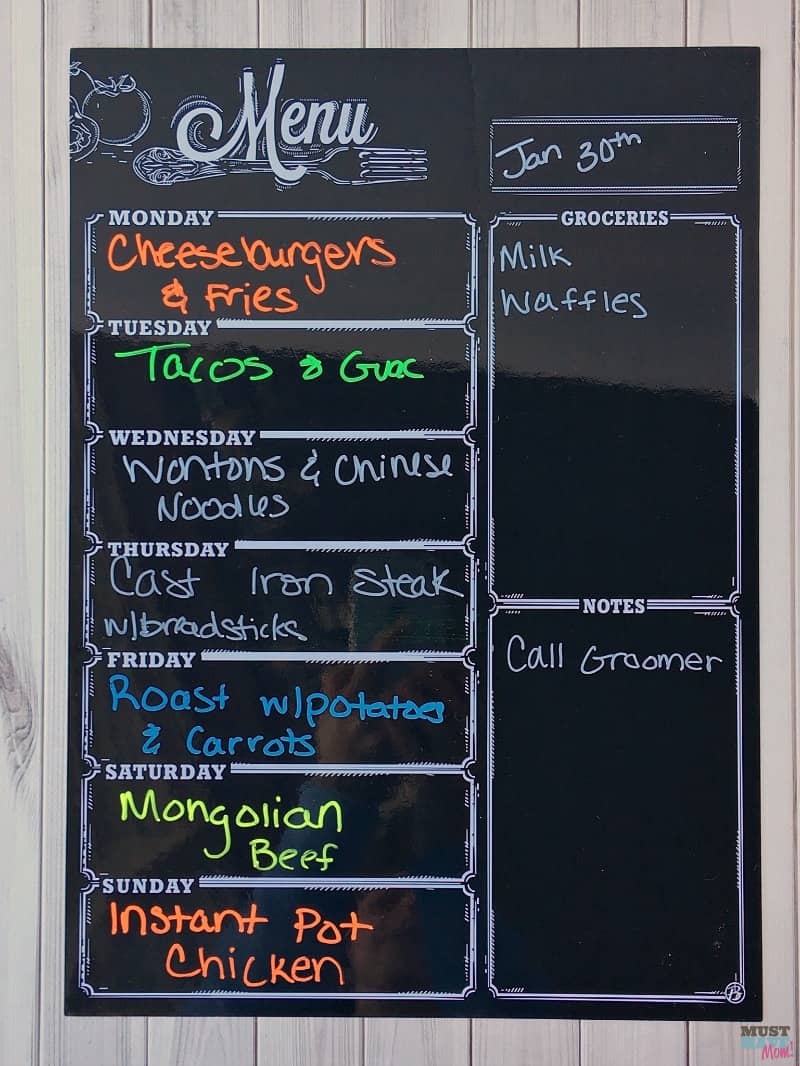 Menu
Jan 30th
MONDAY
Cheeseburgers
& Fries
TUESDAY
Tacos & Guac
WEDNESDAY
Wontons & Chinese
Noodles
THURSDAY
Cast Iron Steak
w/breadsticks
FRIDAY
Roast w/potatoes
& Carrots
SATURDAY
Mongolian
Beef
SUNDAY
Instant Pot
Chicken
GROCERIES
Milk
Waffles
NOTES
Call Groomer
MUST
HAVE
Mom!